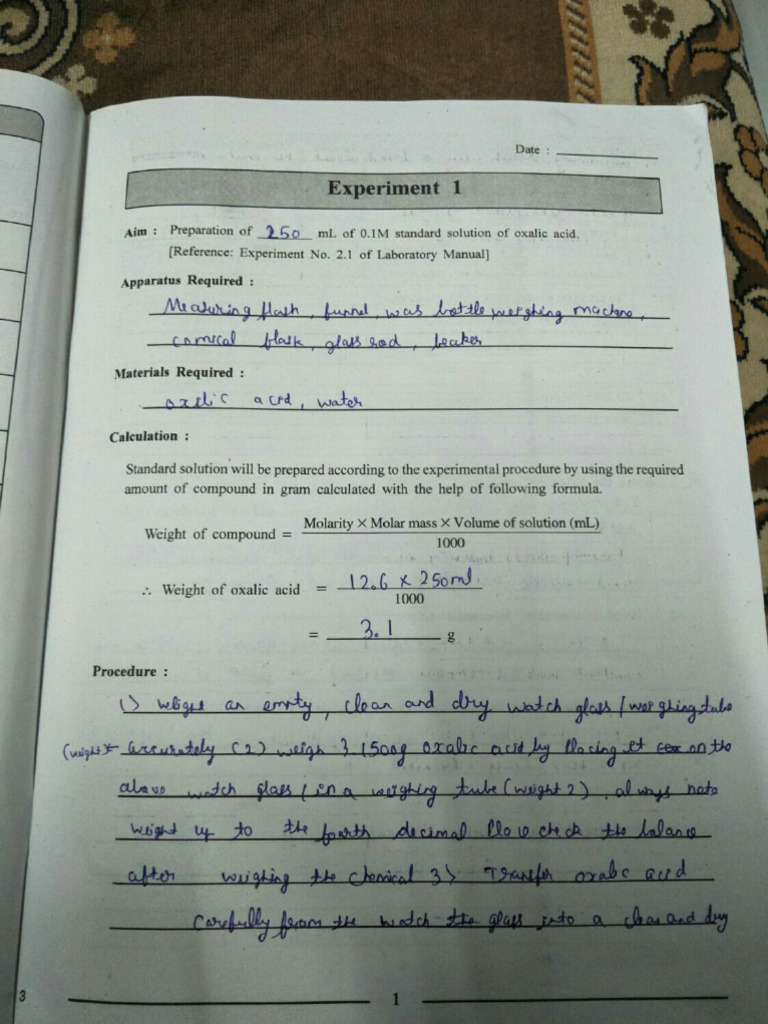 Date :
Experiment 1
Aim : Preparation of 250 mL of 0.1M standard solution of oxalic acid.
[Reference: Experiment No. 2.1 of Laboratory Manual]
Apparatus Required :
Measuring flash, funnel, was bottle weighing machine,
conical flask, glass rod, beaker
Materials Required :
oxelic acid, water
Calculation :
Standard solution will be prepared according to the experimental procedure by using the required
amount of compound in gram calculated with the help of following formula.
Weight of compound = Molarity × Molar mass × Volume of solution (mL)
1000
∴ Weight of oxalic acid = 12.6 × 250ml
1000
= 3.1 g
Procedure :
1) weight an emty, clean and dry watch glass / weighing tube
(weight accurately (2) weigh 3.1500g oxalic acid by placing it on the
above watch glass / in a weighing tube (weight 2). always note
weight up to the fourth decimal check the balance
after weighing the chemical 3) Transfer oxalic acid
carefully from the watch the glass into a clean and dry
3
1